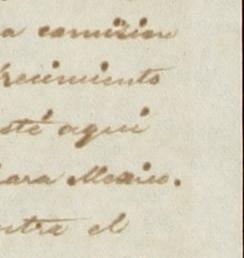 a comision
recimiento
esté aqui
para Mexico.
ntra el